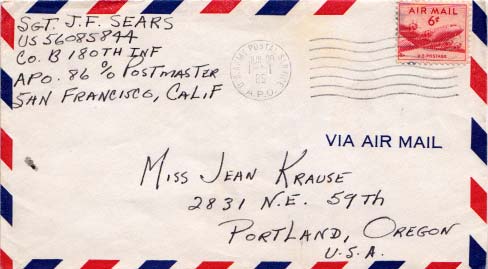 SGT. J.F. SEARS
US 56085844
Co. B 180TH INF
APO. 86 % POSTMASTER
SAN FRANCISCO, CALIF
POSTAL SERVICE
A.P.O.
AIR MAIL
6¢
U.S. POSTAGE
VIA AIR MAIL
MISS JEAN KRAUSE
2831 N.E. 59TH
PORTLAND, OREGON
U.S.A.